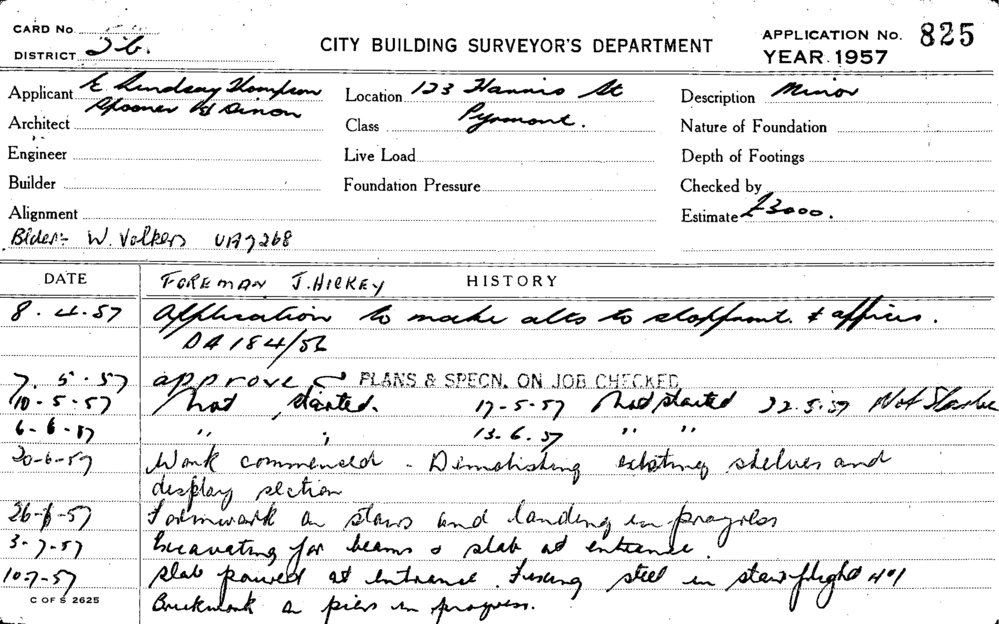 CARD No.
DISTRICT 26.
CITY BUILDING SURVEYOR'S DEPARTMENT
APPLICATION No. 825
YEAR 1957
Applicant E Lindsay Thompson
Spooner & Dixon
Location 123 Harris St
Pyrmont.
Description Minor
Architect
Class
Nature of Foundation
Engineer
Live Load
Depth of Footings
Builder
Foundation Pressure
Checked by
Alignment
Estimate £3000.
Blder:- W. Volkers UA7268
DATE
FOREMAN J. HICKEY
HISTORY
8.4.57 Application to make alts to shopfront. & offices.
DA 184/56
7.5.57 approved PLANS & SPECN. ON JOB CHECKED
10-5-57 Not started. 17-5-57 Not started 22.5.57 Not Started
6-6-57 " " 13.6.57 " "
20-6-57 Work commenced - Demolishing existing shelves and
display section
26-6-57 Formwork on stairs and landing in progress
3-7-57 Excavating for beams & slab at entrance.
10-7-57 Slab poured at entrance. Fixing steel in stair flight
Brickwork on piers in progress.
C OF S 2625